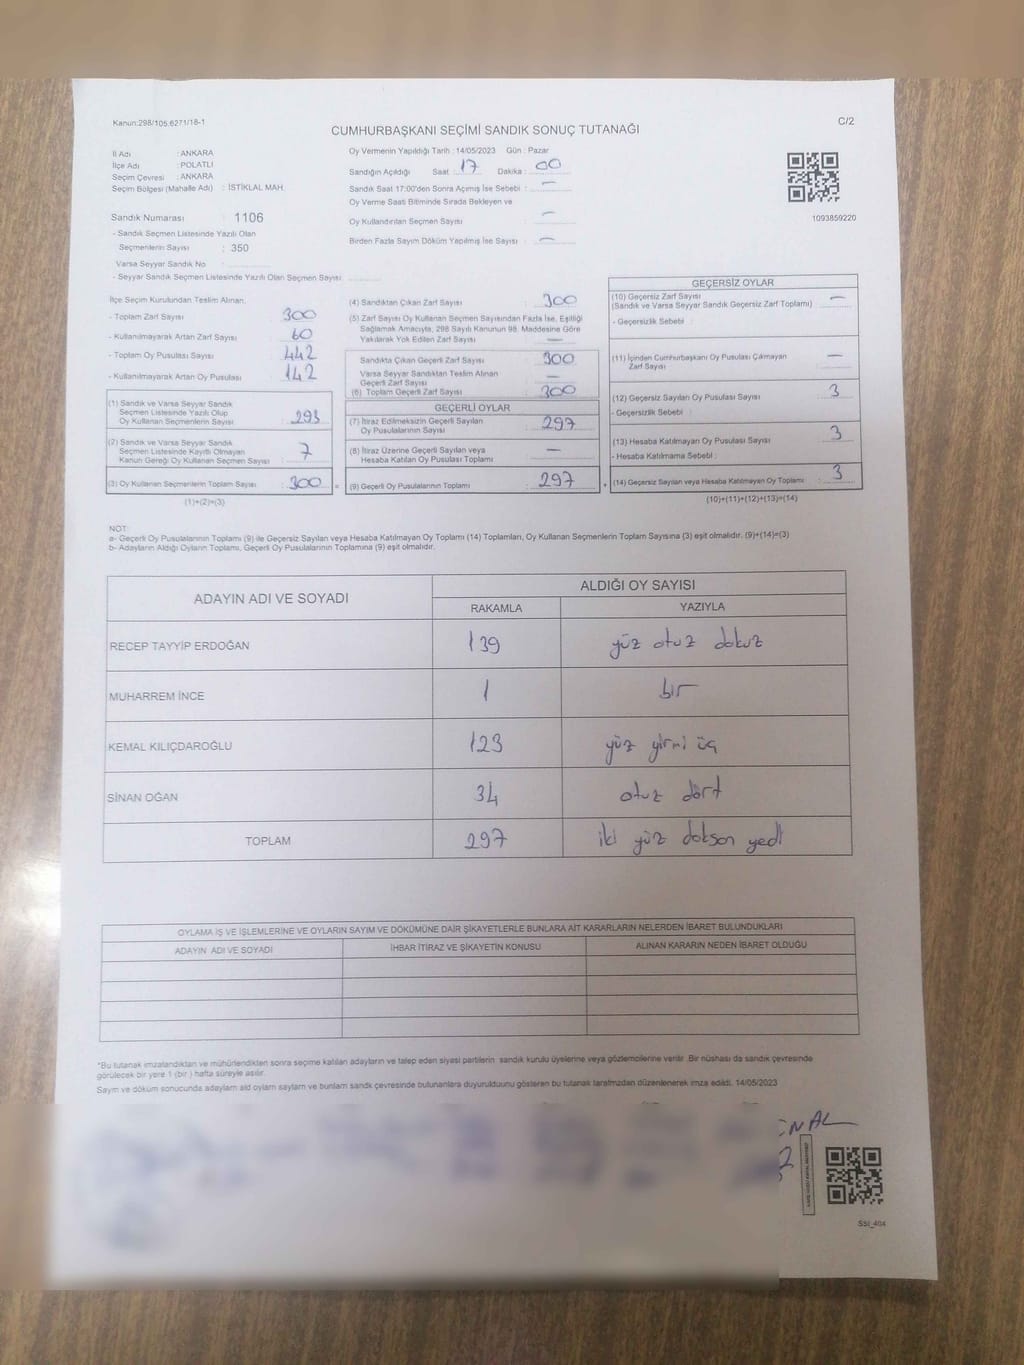 Kanun:298/105.6271/18-1
CUMHURBAŞKANI SEÇİMİ SANDIK SONUÇ TUTANAĞI
C/2
İl Adı : ANKARA
İlçe Adı : POLATLI
Seçim Çevresi : ANKARA
Seçim Bölgesi (Mahalle Adı) : İSTİKLAL MAH.
Sandık Numarası : 1106
- Sandık Seçmen Listesinde Yazılı Olan
Seçmenlerin Sayısı : 350
Varsa Seyyar Sandık No :
- Seyyar Sandık Seçmen Listesinde Yazılı Olan Seçmen Sayısı :
Oy Vermenin Yapıldığı Tarih : 14/05/2023 Gün : Pazar
Sandığın Açıldığı Saat : 17 Dakika : 00
Sandık Saat 17:00'den Sonra Açımış İse Sebebi : —
Oy Verme Saati Bitiminde Sırada Bekleyen ve
Oy Kullandırılan Seçmen Sayısı : —
Birden Fazla Sayım Döküm Yapılmış İse Sayısı : —
1093859220
İlçe Seçim Kurulundan Teslim Alınan,
- Toplam Zarf Sayısı : 300
- Kullanılmayarak Artan Zarf Sayısı : 60
- Toplam Oy Pusulası Sayısı : 442
- Kullanılmayarak Artan Oy Pusulası : 142
(1) Sandık ve Varsa Seyyar Sandık
Seçmen Listesinde Yazılı Olup
Oy Kullanan Seçmenlerin Sayısı : 293
(2) Sandık ve Varsa Seyyar Sandık
Seçmen Listesinde Kayıtlı Olmayan
Kanun Gereği Oy Kullanan Seçmen Sayısı : 7
(3) Oy Kullanan Seçmenlerin Toplam Sayısı : 300 =
(1)+(2)=(3)
(4) Sandıktan Çıkan Zarf Sayısı : 300
(5) Zarf Sayısı Oy Kullanan Seçmen Sayısından Fazla İse, Eşitliği
Sağlamak Amacıyla, 298 Sayılı Kanunun 98. Maddesine Göre
Yakılarak Yok Edilen Zarf Sayısı : —
Sandıkta Çıkan Geçerli Zarf Sayısı : 300
Varsa Seyyar Sandıktan Teslim Alınan
Geçerli Zarf Sayısı : —
(6) Toplam Geçerli Zarf Sayısı : 300
GEÇERLİ OYLAR
(7) İtiraz Edilmeksizin Geçerli Sayılan
Oy Pusulalarının Sayısı : 297
(8) İtiraz Üzerine Geçerli Sayılan veya
Hesaba Katılan Oy Pusulası Toplamı : —
(9) Geçerli Oy Pusulalarının Toplamı : 297 +
GEÇERSİZ OYLAR
(10) Geçersiz Zarf Sayısı
(Sandık ve Varsa Seyyar Sandık Geçersiz Zarf Toplamı) : —
- Geçersizlik Sebebi :
(11) İçinden Cumhurbaşkanı Oy Pusulası Çıkmayan
Zarf Sayısı : —
(12) Geçersiz Sayılan Oy Pusulası Sayısı : 3
- Geçersizlik Sebebi :
(13) Hesaba Katılmayan Oy Pusulası Sayısı : 3
- Hesaba Katılmama Sebebi :
(14) Geçersiz Sayılan veya Hesaba Katılmayan Oy Toplamı : 3
(10)+(11)+(12)+(13)=(14)
NOT:
a- Geçerli Oy Pusulalarının Toplamı (9) ile Geçersiz Sayılan veya Hesaba Katılmayan Oy Toplamı (14) Toplamları, Oy Kullanan Seçmenlerin Toplam Sayısına (3) eşit olmalıdır. (9)+(14)=(3)
b- Adayların Aldığı Oyların Toplamı, Geçerli Oy Pusulalarının Toplamına (9) eşit olmalıdır.
ADAYIN ADI VE SOYADI
ALDIĞI OY SAYISI
RAKAMLA YAZIYLA
RECEP TAYYİP ERDOĞAN 139 yüz otuz dokuz
MUHARREM İNCE 1 bir
KEMAL KILIÇDAROĞLU 123 yüz yirmi üç
SİNAN OĞAN 34 otuz dört
TOPLAM 297 iki yüz doksan yedi
OYLAMA İŞ VE İŞLEMLERİNE VE OYLARIN SAYIM VE DÖKÜMÜNE DAİR ŞİKAYETLERLE BUNLARA AİT KARARLARIN NELERDEN İBARET BULUNDUKLARI
ADAYIN ADI VE SOYADI İHBAR İTİRAZ VE ŞİKAYETİN KONUSU ALINAN KARARIN NEDEN İBARET OLDUĞU
*Bu tutanak imzalandıktan ve mühürlendikten sonra seçime katılan adayların ve talep eden siyasi partilerin sandık kurulu üyelerine veya gözlemcilerine verilir. Bir nüshası da sandık çevresinde
görülecek bir yere 1 (bir ) hafta süreyle asılır.
Sayım ve döküm sonucunda adayların aldı oyların sayıları ve bunların sandık çevresinde bulunanlara duyurulduunu gösteren bu tutanak tarafımızdan düzenlenerek imza edildi. 14/05/2023
SSI_404